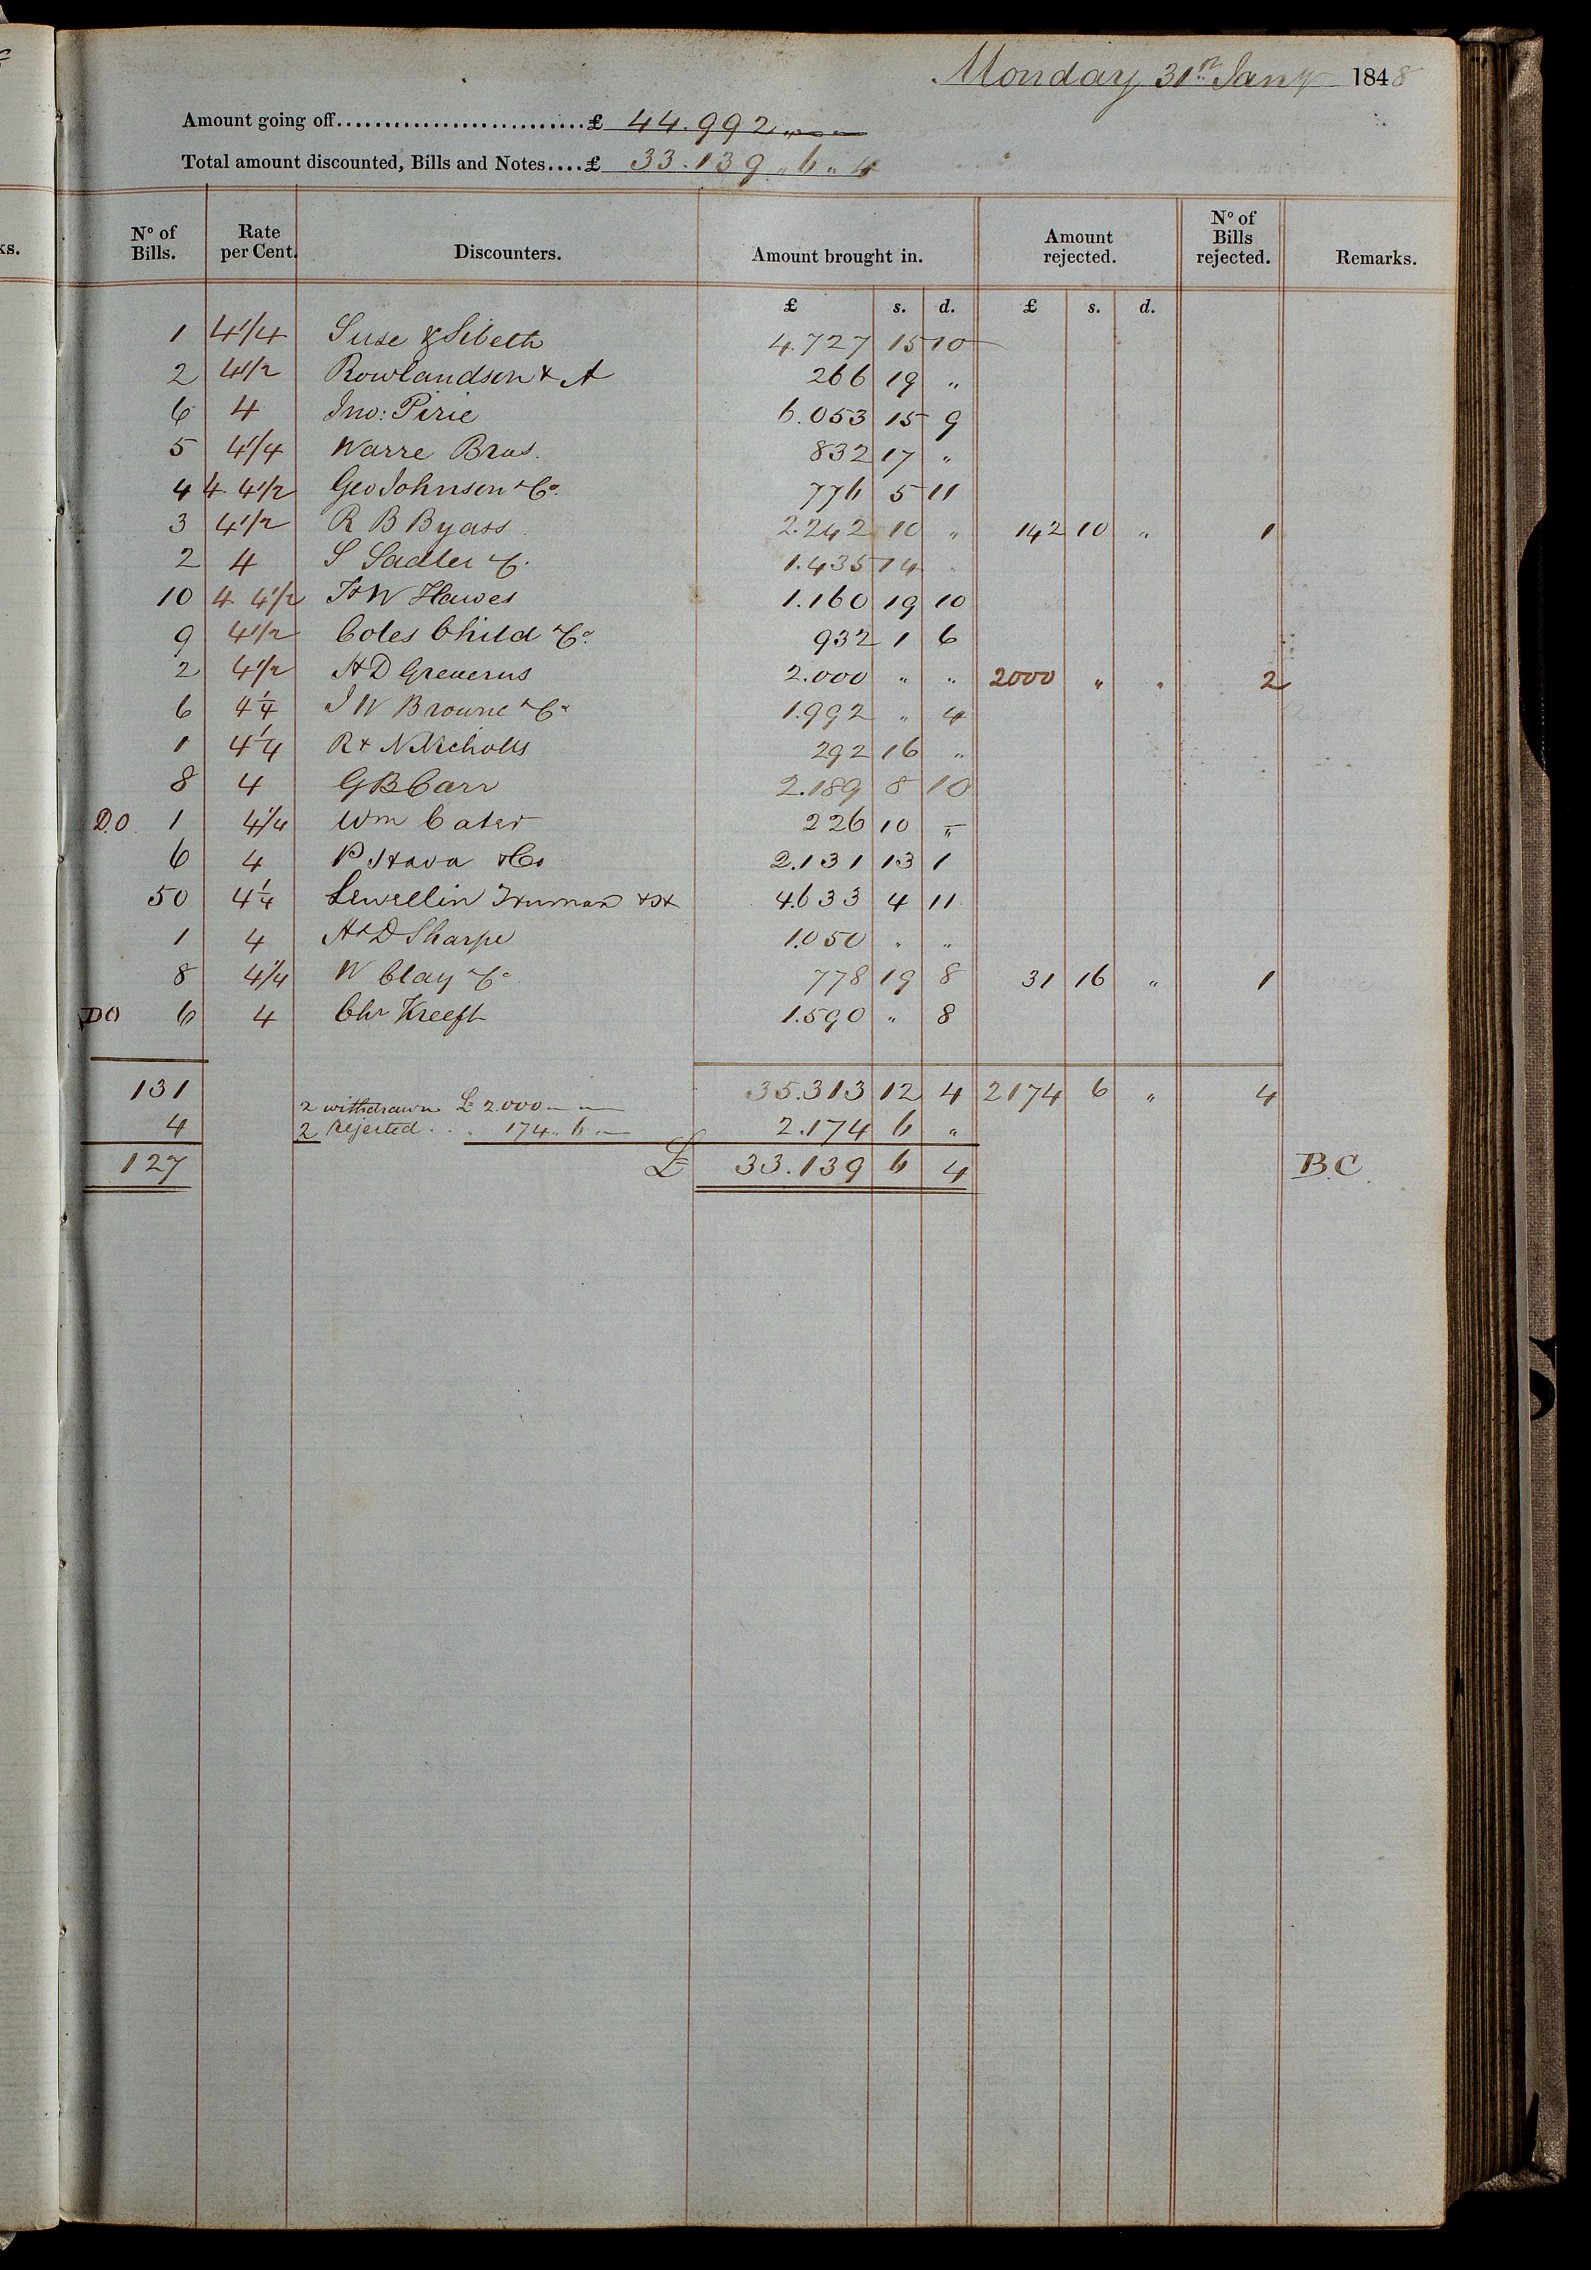 Monday 31st Jany 1848
Amount going off..........................£ 44.992 „ — —
Total amount discounted, Bills and Notes....£ 33.139 „ 6 „ 4
ks. No of Bills. Rate per Cent. Discounters. Amount brought in. Amount rejected. No of Bills rejected. Remarks.
£ s. d. £ s. d.
1 4 1/4 Suse & Sibeth 4.727 15 10
2 4 1/2 Rowlandson & A 266 19 „
6 4 Jno: Pirie 6.053 15 9
5 4 1/4 Warre Bros. 832 17 „
4 4 4 1/2 Geo Johnson & Co. 776 5 11
3 4 1/2 R B Byass 2.242 10 „ 142 10 „ 1
2 4 S Sadler & C. 1.435 14 „
10 4 4 1/2 T & W Hawes 1.160 19 10
9 4 1/2 Coles Child & Co. 932 1 6
2 4 1/2 H D Greverus 2.000 „ „ 2000 „ „ 2
6 4 1/4 J W Browne & Co 1.992 „ 4
1 4 1/4 R & N Nicholls 292 16 „
8 4 G B Carr 2.189 8 10
D.O. 1 4 1/4 Wm Cater 226 10 „
6 4 P Hava & Co 2.131 13 1
50 4 1/4 Lewellin Truman & H 4.633 4 11
1 4 H & D Sharpe 1.050 „ „
8 4 1/4 W Clay & Co 778 19 8 31 16 „ 1
DO 6 4 Chr Kreeft 1.590 „ 8
131 35.313 12 4 2174 6 „ 4
2 withdrawn £ 2.000 — —
4 2 rejected . . . 174 „ 6 — 2.174 6 „
127 £ 33.139 6 4 B.C.